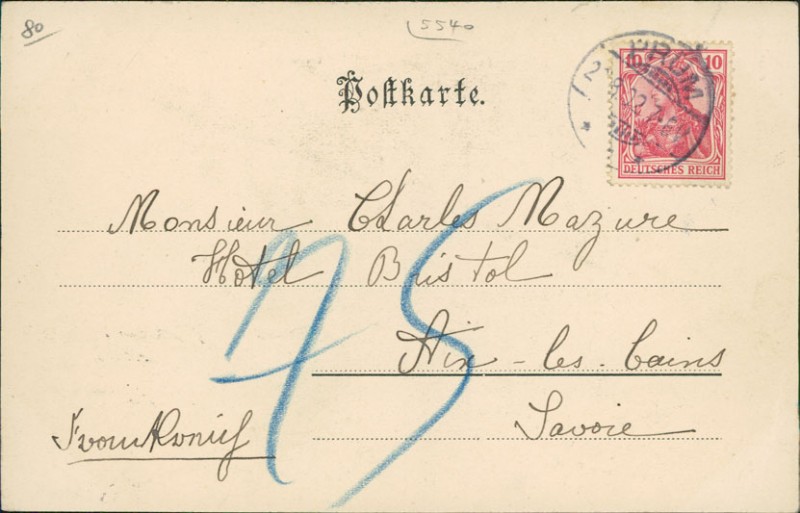 80
5540
Postkarte.
PRÜM
10 10
DEUTSCHES REICH
Monsieur Charles Mazure
Hotel Bristol
Aix-les-bains
Savoie
75